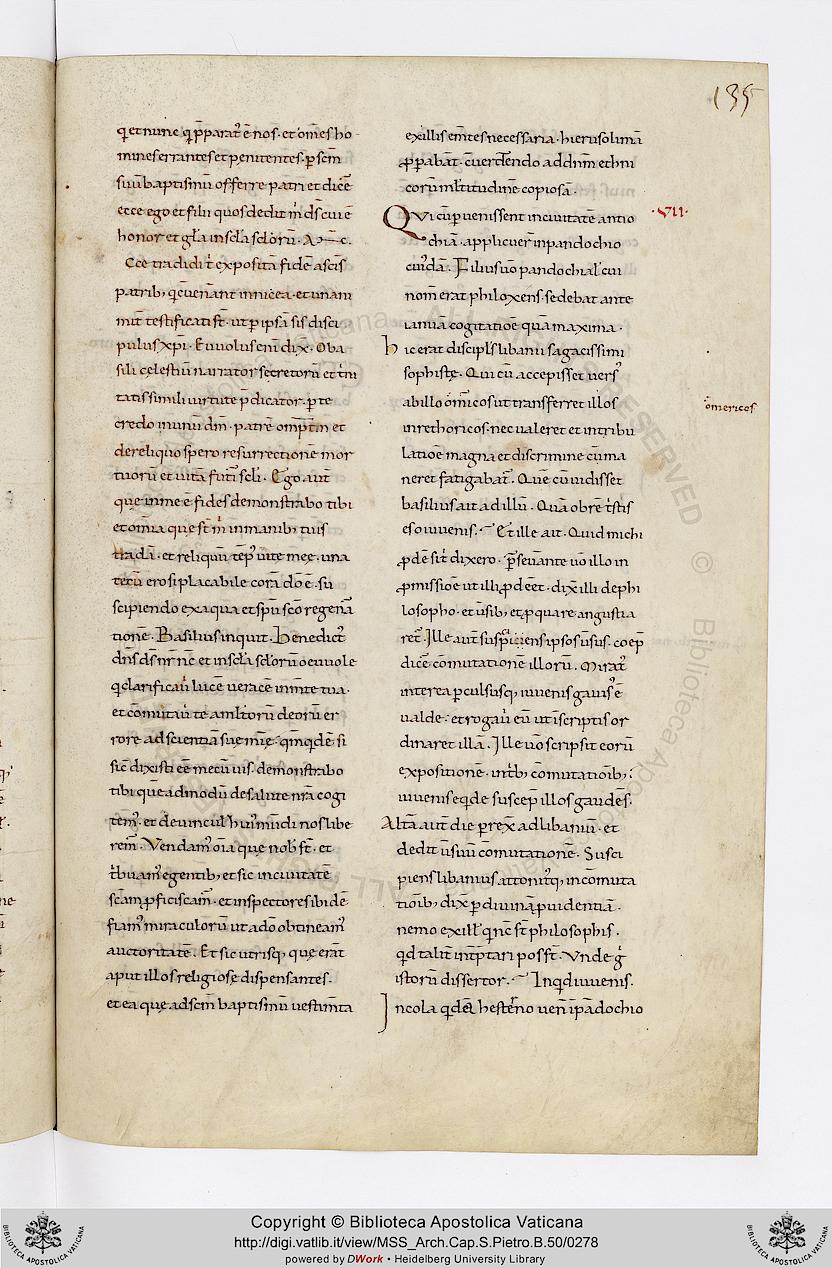 135
q̄ et nunc q̄ p̄parat᾽ ē nos · et om̄es ho
mines errantes et penitentes · p sc̄m
suū baptismū offerre patri et dicē
ecce ego et filii quos dedit m̄ ds̄ cui ē
honor et gl̄a in sc̄la sc̄lorū · A
Ecce tradidi t̄ exposita fidē a scīs
patrib; q̄ cuenant in nicea · et unam
mit̄ testificati st̄ · ut p ipsā sis disci
pulus xp̄i · Eu uolus enī dix̄ · O ba
sili cęlestiū narrator secretorū et t̄ni
tatis simili uirtute p̄dicator · p te
credo in unū dm̄ · patrē om̄ptm̄ et
de reliquo spero resurrectionē mor
tuorū et uitā futi᾽ sc̄li · Ego aut̄
que in me ē fides demonstrabo tibi
et om̄ia que st̄ m̄ in manib; tuis
tradā · et reliquū tēp᾽ uite meę · una
tecū ero si placabile corā dō ē · su
scipiendo ex aqua et sp̄u scō regen̄a
tionē · Basilius inquit · Benedict᾽
dn̄s ds̄ nr̄ nc̄ et in sc̄la sc̄lorū o euuole
q̄ clarificauı᾽ lucē ueracē in m̄te tua ·
et cōmutauı᾽ te a ml̄torū deorū er
rore ad scientiā sue mīę · qm̄ q̄dē si
sic̄ dixisti eē mecū uis · demonstrabo
tibi quē admodū de salute nr̄a cogi
tem᾽ · et de uincul᾽ hui᾽ mūdi nos libe
rem᾽ · Vendam᾽ om̄ia que nob᾽ st̄ · et
t᾽buam᾽ egentib; et sic in ciuitatē
sc̄am p̄ficiscam᾽ · et inspectores ibi dē
fiam᾽ miraculorū ut a dō obtineam᾽
auctoritatē · Et sic utrisq; quę erāt
aput illos religiose dispensantes ·
et ea quę ad sc̄m baptismū uestim̄ta
ex illis em̄tes necessaria · hierusolimā
p̄pabāt · cuertendo ad dn̄m ethni
corū ml̄titudinē copiosā ·
Qui cū puenissent in ciuitatē antio
chiā · applicuer̄ in pandochio
cui᾽dā · Filius uō pandochi al᾽ cui
nom̄ erat philoxens · sedebat ante
ianuā cogitatioē quā maxima ·
hic erat discipl᾽s libanii sagacissimi
sophistę · Qui cū accepisset uers᾽
ab illo om̄icos ut transferret illos
in rethoricos · nec ualeret et in tribu
latioē magna et discrimine cū ma
neret fatigabat᾽ · Quē cū uidisset
basilius ait ad illū · Quā ob rē t᾽stis
es o iuuenis · Et ille ait · Quid michi
p̄dē si t᾽ dixero · p̄seuante uō illo in
p̄missioē ut illi p̄ deēt · dix̄ illi de phi
losopho · et ūsib; et p quare angustia
ret᾽ · Ille aut̄ suspiciens ipsos ūsus · coep̄
dicē cōmutationē illorū · Mirat᾽
interea pculsusq; iuuenis gauis᾽ ē
ualde · et rogau᾽ eū ut ī scriptis or
dinaret illa · Ille uō scripsit eorū
expositionē · in trib; cōmutatioīb; :
iuuenis eq̄de suscep̄ illos gaudēs ·
Alt̄a aut̄ die prex̄ ad libaniū · et
dedit ūsuū cōmutationē · Susci
piens libanius attonitq; in cōmuta
tioīb; dix̄ p diuinā p̄uidentiā ·
nemo ex ill᾽ q̄ nc̄ st̄ philosophis ·
qd̄ talit̄ int̄p̄tari posst̄ · Vnde g᾽
istorū dissertor · Inq̄d iuuenis ·
Incola q̄dā hest̄no uen̄ ī pādochio
· VII ·
ōmericos
Copyright © Biblioteca Apostolica Vaticana
http://digi.vatlib.it/view/MSS_Arch.Cap.S.Pietro.B.50/0278
powered by DWork • Heidelberg University Library